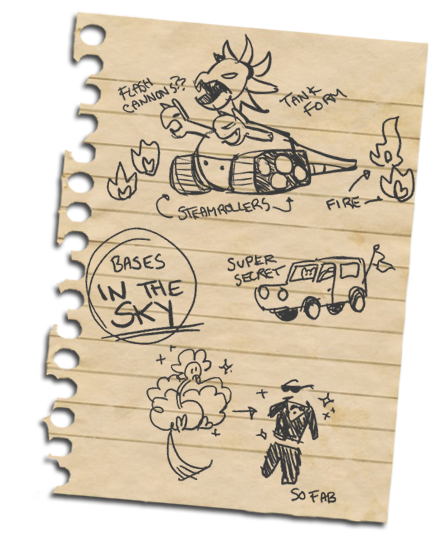 FLASH
CANNONS??
TANK
FORM
STEAMROLLERS
FIRE
BASES
IN THE
SKY
SUPER
SECRET
M
SO FAB